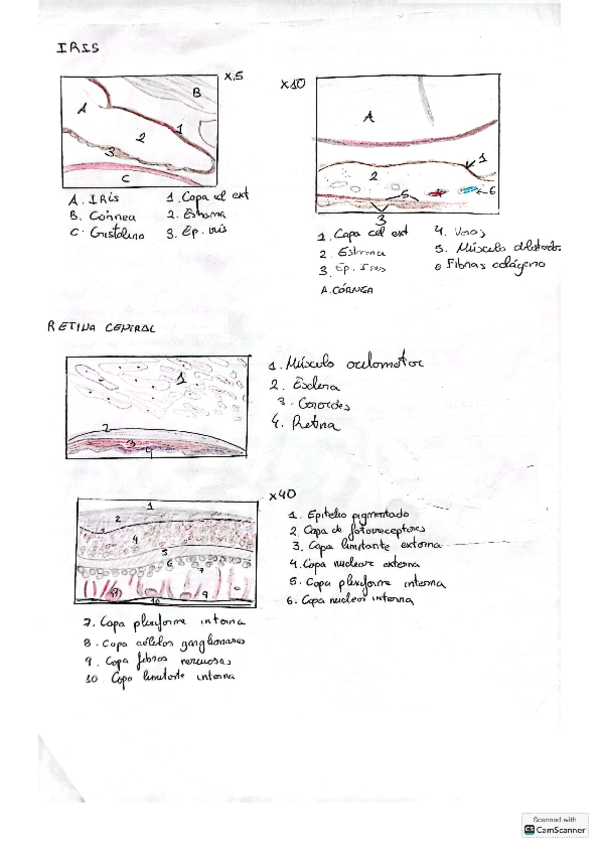 IRIS
X5
A
B
1
2
3
C
A. IRIS
B. Córnea
C. Cristalino
1. Capa cél ext
2. Estroma
3. Ep. iris
X10
A
1
2
5
6
3
1. Capa cél ext
2. Estroma
3. Ep. Iris
A. CÓRNEA
4. Vasos
5. Músculo dilatador
6 Fibras colágeno
RETINA CENTRAL
1
2
3
1. Músculo oculomotor
2. Esclera
3. Coroides
4. Retina
X40
1
2
3
4
5
6
7
8
9
10
1. Epitelio pigmentado
2 Capa de fotorreceptores
3. Capa limitante externa
4. Capa nuclear externa
5. Capa plexiforme interna
6. Capa nuclear interna
7. Capa plexiforme interna
8. Capa células ganglionares
9. Capa fibras nerviosas
10 Capa limitante interna
Scanned with
CS CamScanner